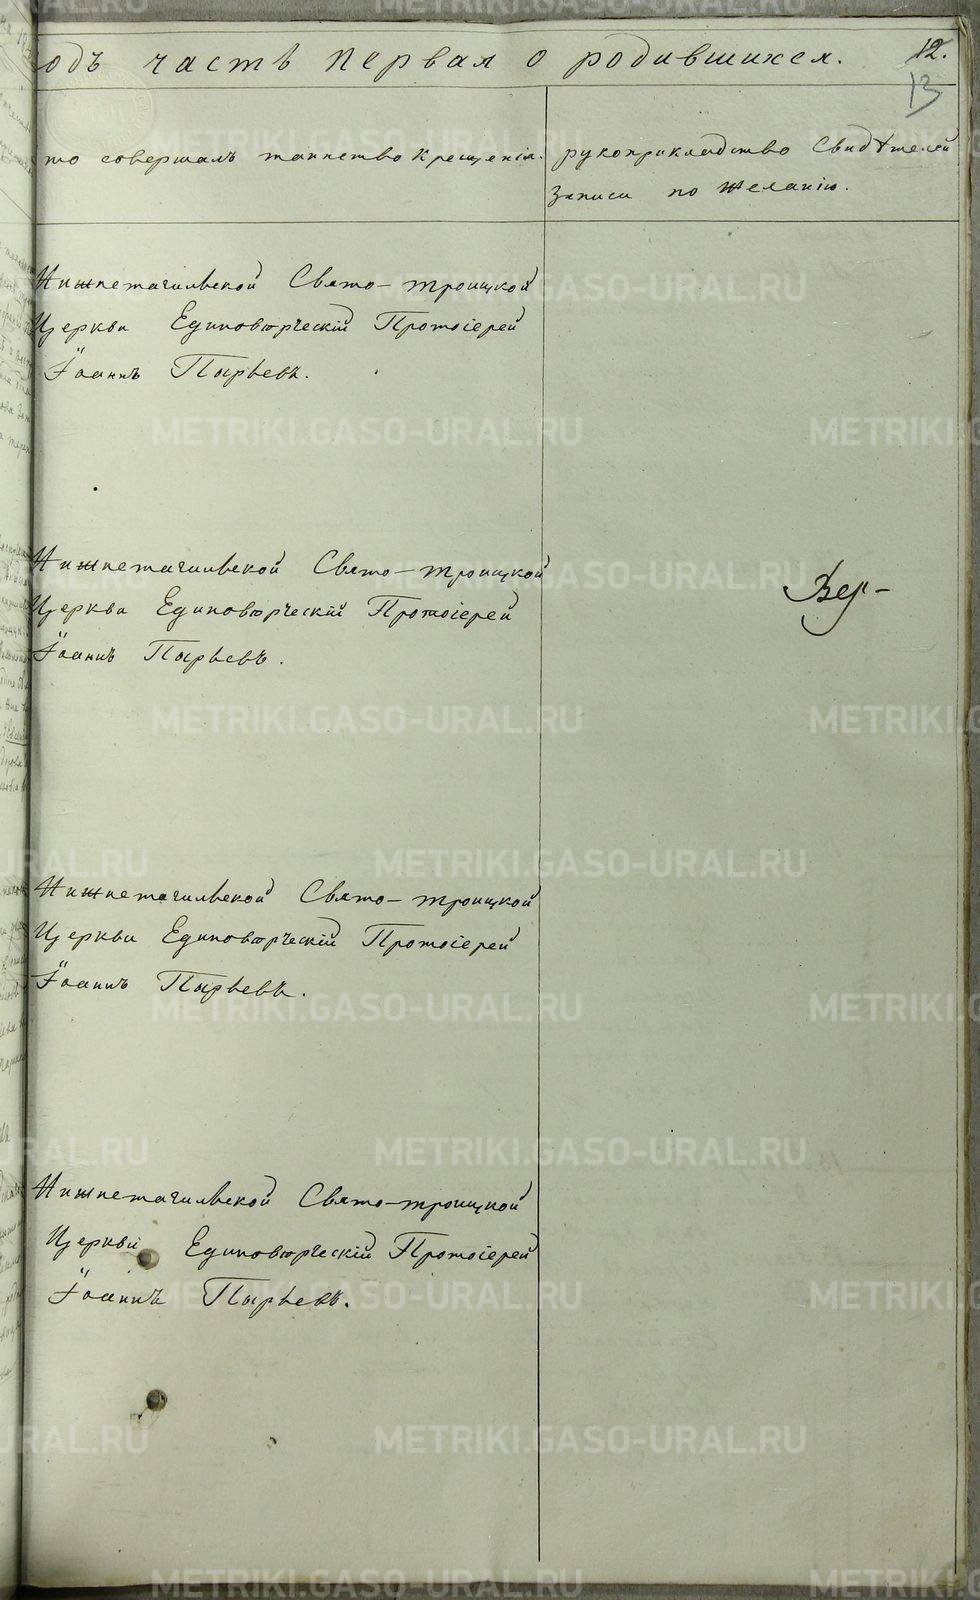 одъ часть первая о родившихся. 12.
13
то совершалъ таинство крещенія.
рукоприкладство свидѣтелей
записи по желанію.
Нижнетагильской Свято-троицкой
Церкви Единовѣрческій Протоіерей
Іоаннъ Пырьевъ.
Нижнетагильской Свято-троицкой
Церкви Единовѣрческій Протоіерей
Іоаннъ Пырьевъ.
Вер-
Нижнетагильской Свято-троицкой
Церкви Единовѣрческій Протоіерей
Іоаннъ Пырьевъ.
Нижнетагильской Свято-троицкой
Церкви Единовѣрческій Протоіерей
Іоаннъ Пырьевъ.
METRIKI.GASO-URAL.RU